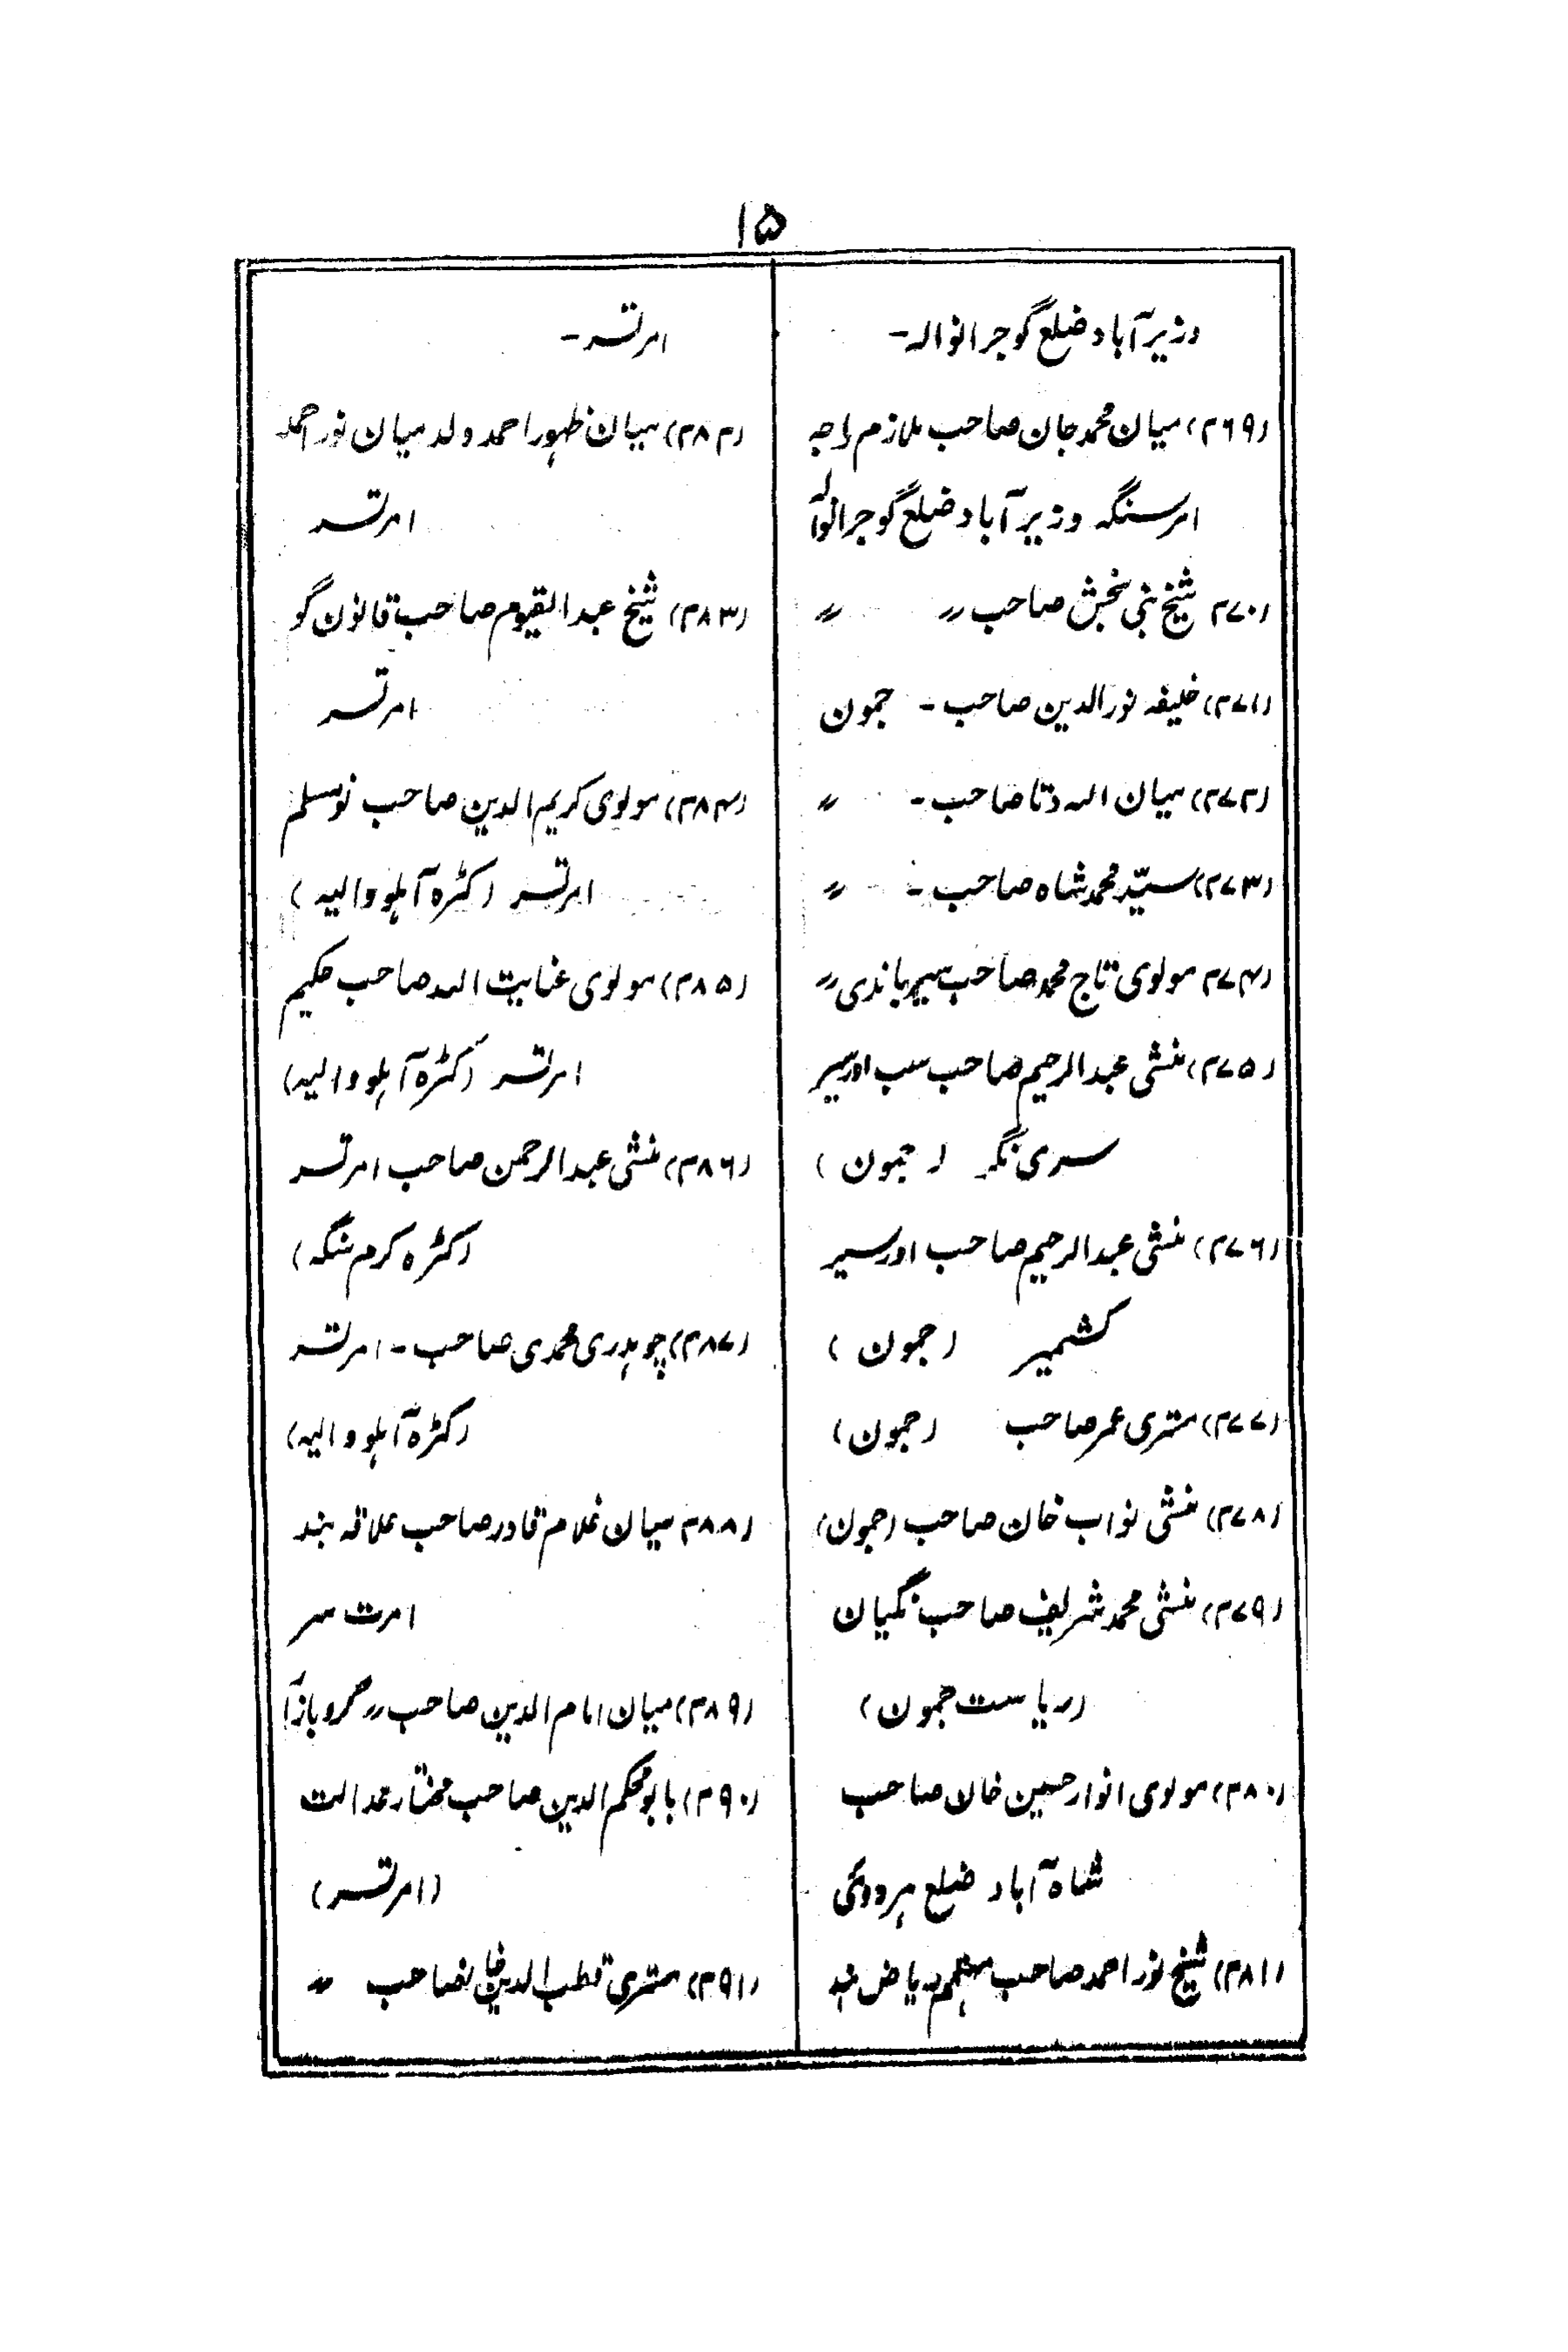 ۱۵
وزیر آباد ضلع گوجرانوالہ۔
(۲۶۹) میان محمد جان صاحب ملازم راجہ
امر سنگہ وزیر آباد ضلع گوجرانوالہ
(۲۷۰ شیخ نبی بخش صاحب 〃 〃
(۲۷۱) خلیفہ نور الدین صاحب ۔ جمون
(۲۷۲) میان اللہ دتا صاحب ۔ 〃
(۲۷۳) سیّد محمد شاہ صاحب ۔ 〃
(۲۷۴ مولوی تاج محمد صاحب سیر باندی 〃
(۲۷۵) منشی عبد الرحیم صاحب سب اورسیر
سری نگر (جمون)
(۲۷۶) منشی عبد الرحیم صاحب اورسیر
کشمیر (جمون)
(۲۷۷) مستری عمر صاحب (جمون)
(۲۷۸) منشی نواب خان صاحب (جمون)
(۲۷۹) منشی محمد شریف صاحب نگیان
(ریاست جمون)
(۲۸۰) مولوی انوار حسین خان صاحب
شاہ آباد ضلع ہردوئی
(۲۸۱) شیخ نور احمد صاحب مہتمم ریاض ہند
امرتسر ۔
(۲۸۲) میان ظہور احمد ولد میان نور احمد
امرتسر
(۲۸۳) شیخ عبد القیوم صاحب قانون گو
امرتسر
(۲۸۴) مولوی کریم الدین صاحب نو مسلم
امرتسر (کٹرہ آہلو والیہ)
(۲۸۵) مولوی عنایت اللہ صاحب حکیم
امرتسر (کٹرہ آہلو والیہ)
(۲۸۶) منشی عبد الرحمن صاحب امرتسر
(کٹرہ کرم سنگہ)
(۲۸۷) چوہدری محمدی صاحب ۔ امرتسر
(کٹرہ آہلو والیہ)
(۲۸۸ میان غلام قادر صاحب علاقہ بند
امرت سر
(۲۸۹) میان امام الدین صاحب 〃
(۲۹۰) بابو محکم الدین صاحب مختار عدالت
(امرتسر)
(۲۹۱) مستری قطب الدین خانصاحب 〃